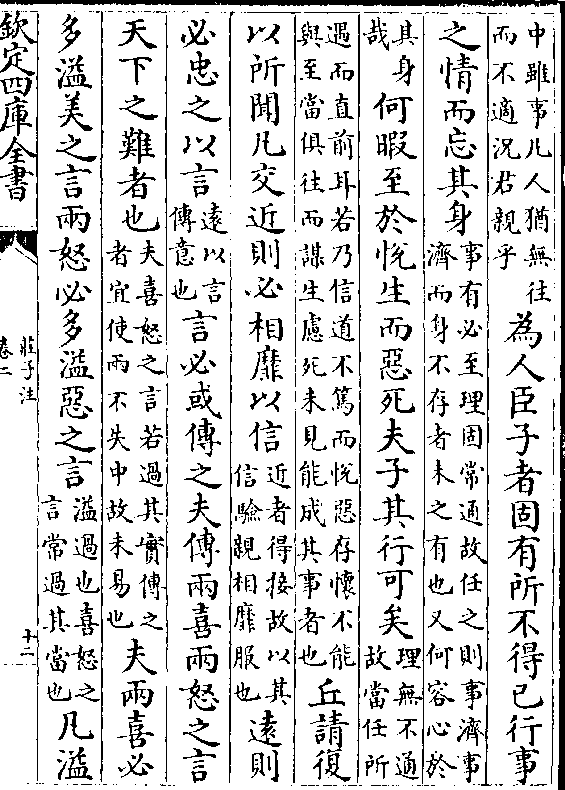 中雖事凡人猶無往
而不適況君親乎
為人臣子者固有所不得已行事
之情而忘其身
事有必至理固常通故任之則事濟事
濟而身不存者未之有也又何容心於
其身
哉
何暇至於悅生而惡死夫子其行可矣
理無不通
故當任所
遇而直前耳若乃信道不篤而悅惡存懷不能
與至當俱往而謀生慮死未見能成其事者也
丘請復
以所聞凡交近則必相靡以信
近者得接故以其
信驗親相靡服也
遠則
必忠之以言
遠以言
傳意也
言必或傳之夫傳兩喜兩怒之言
天下之難者也
夫喜怒之言若過其實傳之
者宜使兩不失中故未易也
夫兩喜必
多溢美之言兩怒必多溢惡之言
溢過也喜怒之
言常過其當也
凡溢
欽定四庫全書
莊子注
卷二
十二